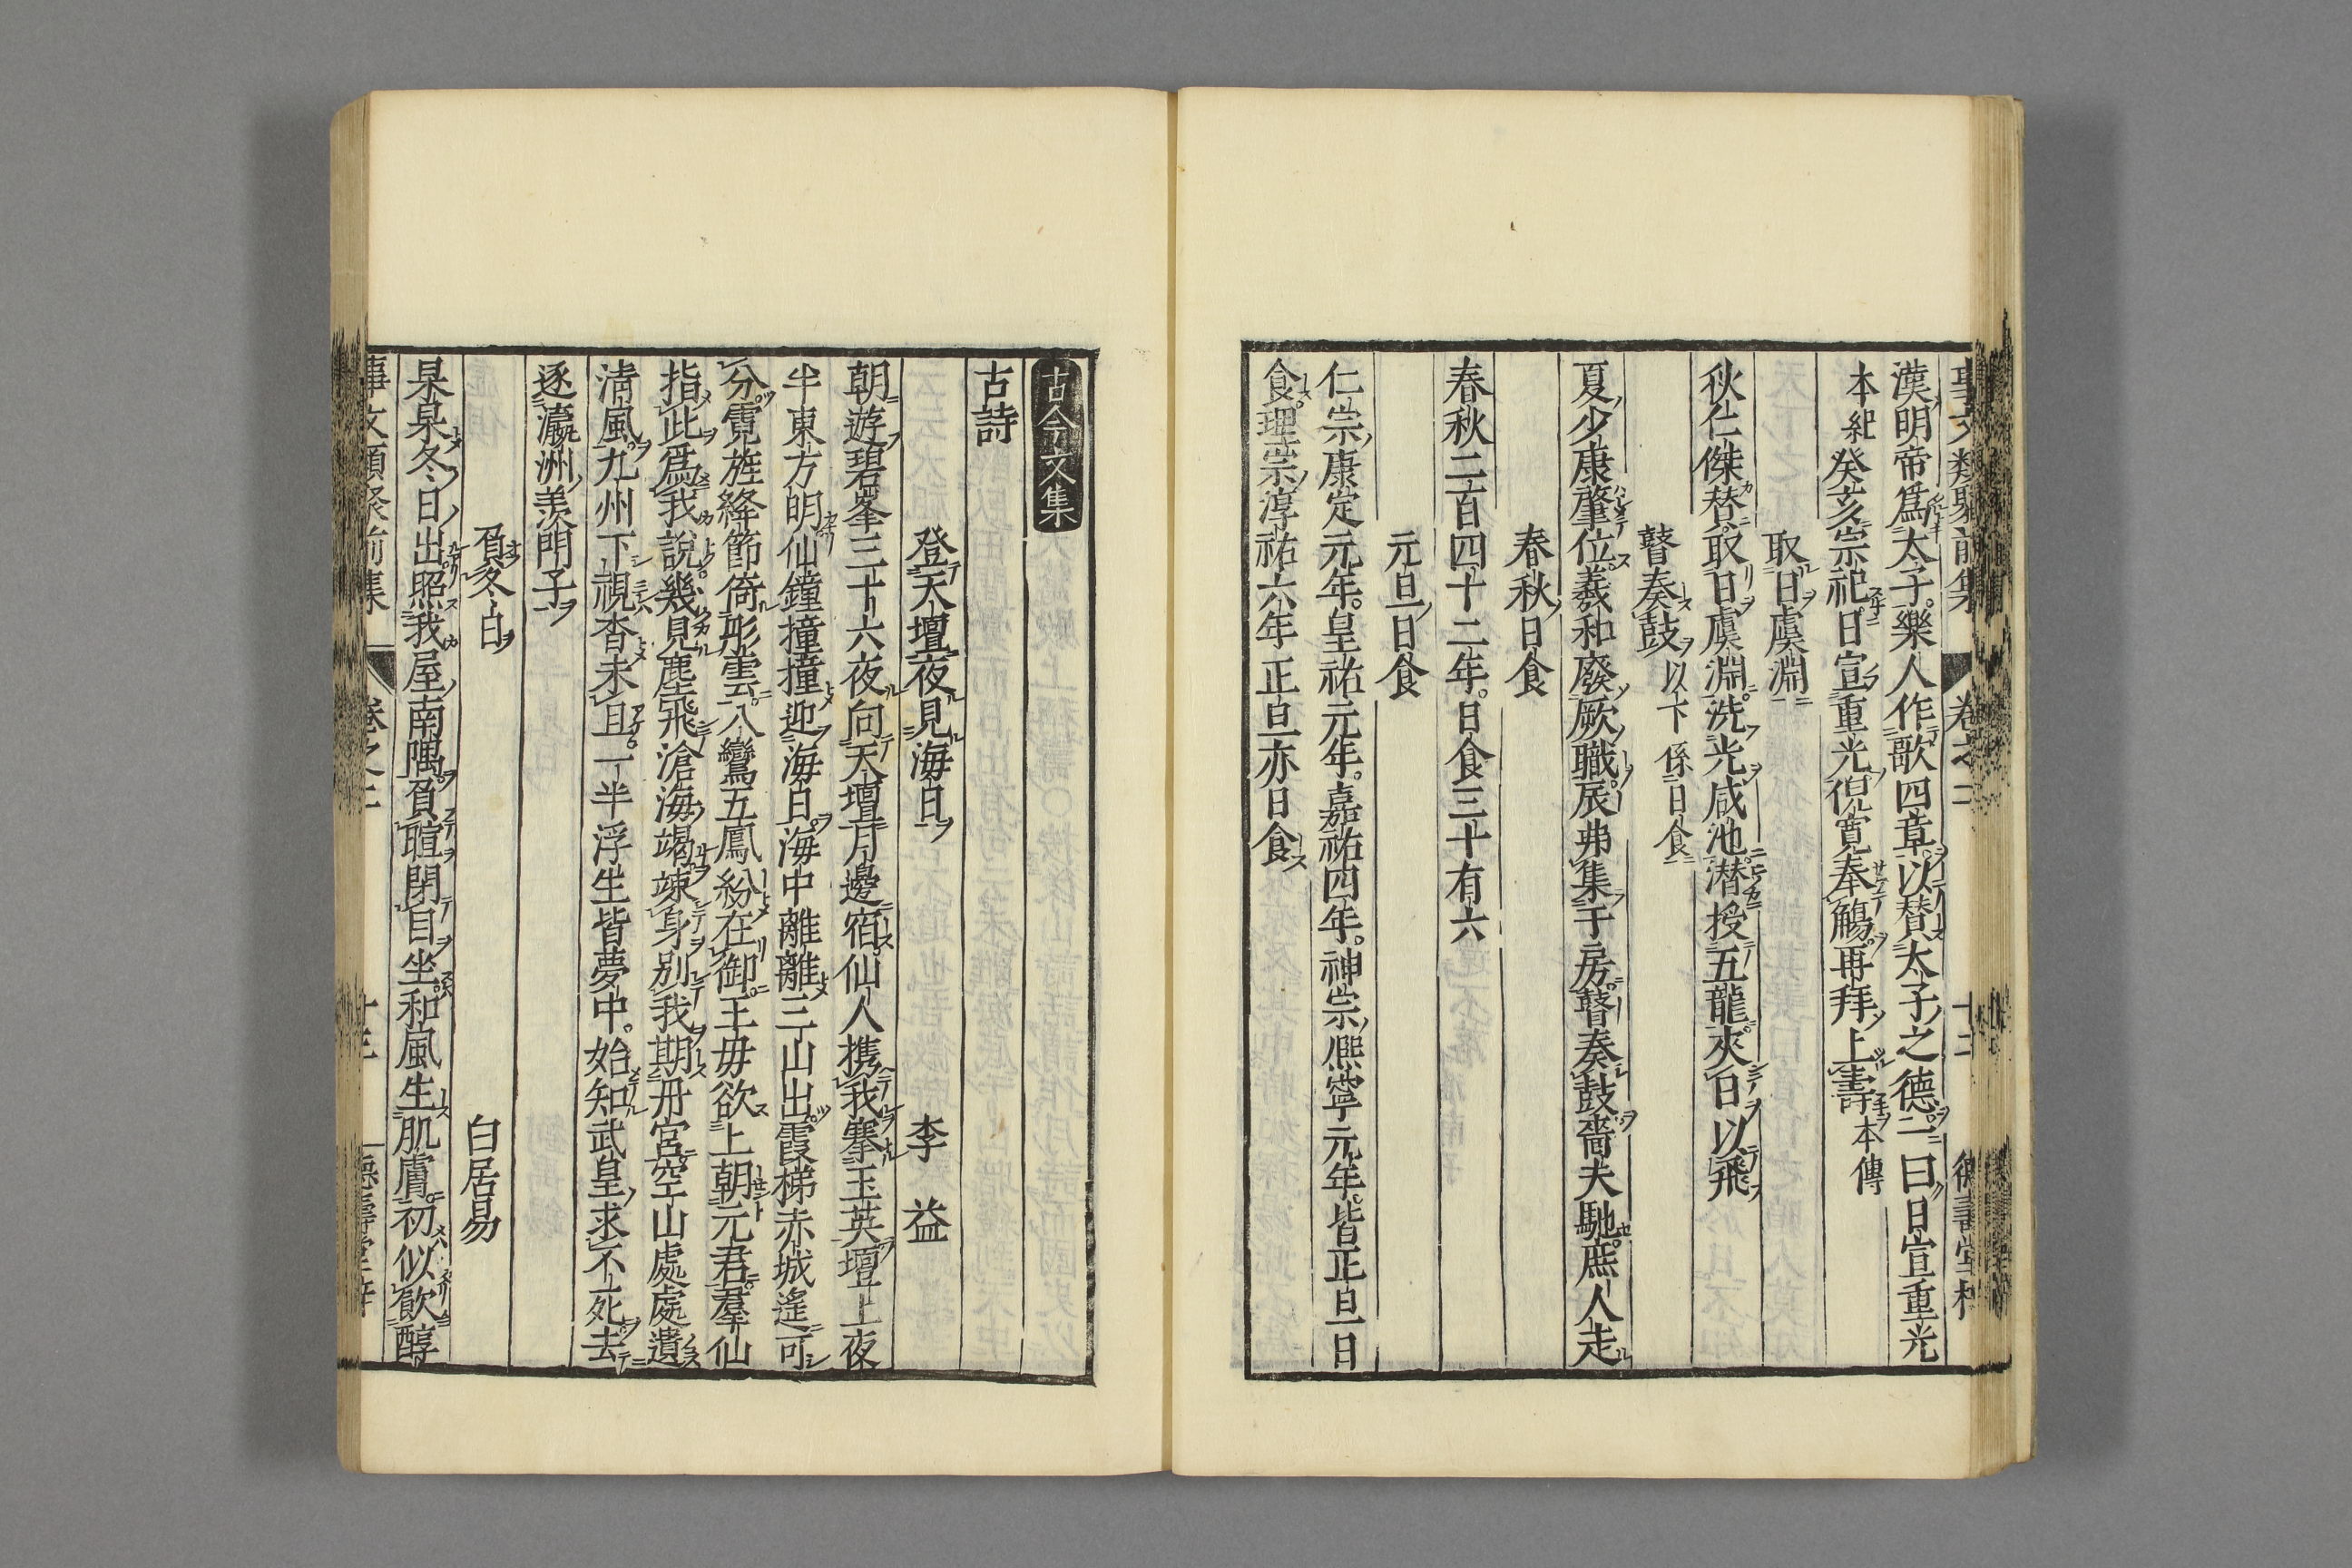 事文類聚前集 卷之二 十二 德壽堂梓
漢明帝爲太子。樂人作歌四章。以賛太子之德。一曰日宣重光
本紀 癸亥宗祀。日宣重光。倪寛奉觴。再拜上壽 本傳
取日虞淵
狄仁傑替取日虞淵。洗光咸池。潜授五龍夾日以飛
瞽奏鼓 以下係日食
夏少康肇位。羲和廢厥職。辰弗集于房。瞽奏鼓。嗇夫馳。庶人走
春秋日食
春秋二百四十二年。日食三十有六
元旦日食
仁宗康定元年。皇祐元年。嘉祐四年。神宗熈寧元年。皆正旦日
食。理宗淳祐六年正旦亦日食
古今文集
古詩
登天壇夜見海日 李益
朝遊碧峯三十六夜向天壇月邊宿。仙人携我搴玉英壇上夜
半東方明仙鐘撞撞迎海日。海中離離三山出。霞梯赤城遙可
分。霓旌絳節倚彤雲。八鸞五鳳紛在御。王毋欲上朝元君。羣仙
指此爲我說。幾見塵飛滄海竭。竦身別我期丹宮。空山處處遺
清風。九州下視杳未旦。一半浮生皆夢中。始知武皇求不死。去
逐瀛洲羨門子
負冬日 白居易
杲杲冬日出。照我屋南隅。負暄閉目坐。和風生肌膚。初似飲醇
事文類聚前集 卷之二 十三 德壽堂梓